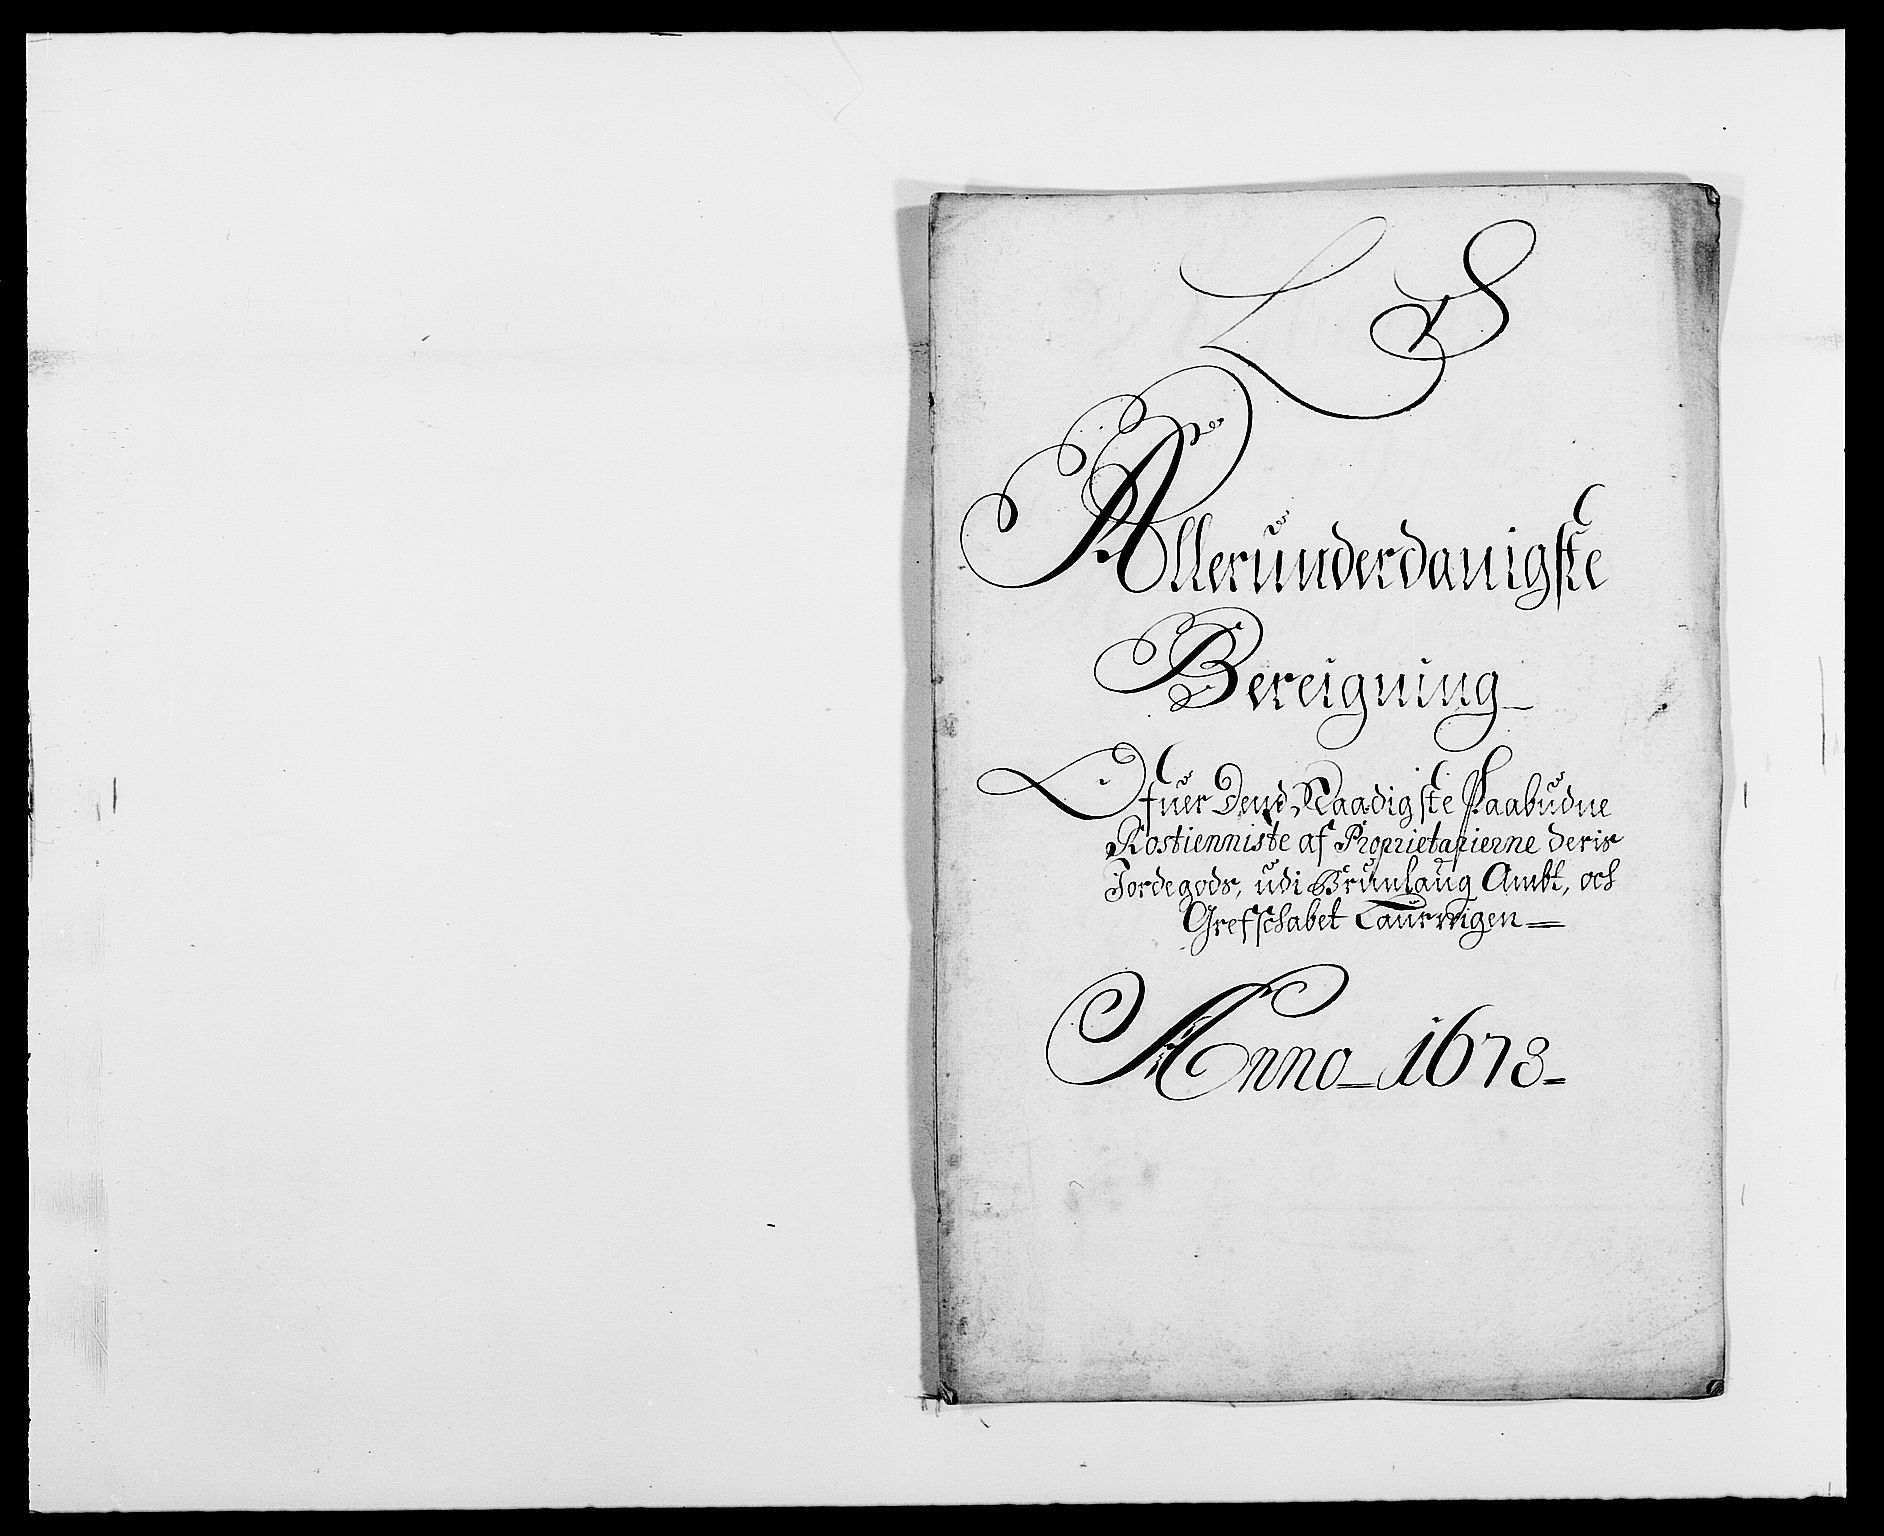 L S
Allerunderdanigste
Bereigning
Ofuer Dend Naadigste Paabudne
Rostienniste af Proprietarierne deris
Jordegods, udi Brunlaug Ambt, och
Grefschabet Laurwigen
Anno 1678